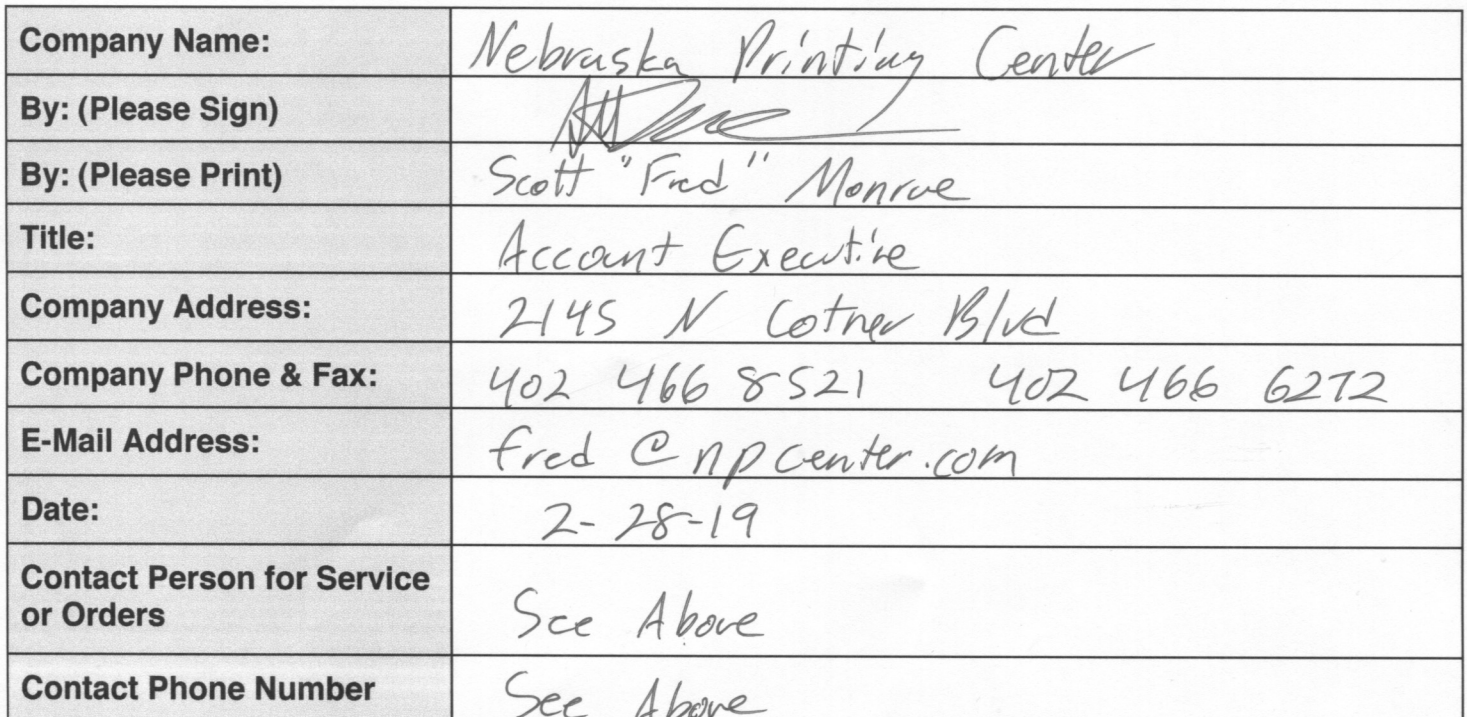 Company Name: Nebraska Printing Center
By: (Please Sign)
By: (Please Print) Scott "Fred" Monroe
Title: Account Executive
Company Address: 2145 N Cotner Blvd
Company Phone & Fax: 402 466 8521 402 466 6272
E-Mail Address: fred @ npcenter.com
Date: 2-28-19
Contact Person for Service
or Orders See Above
Contact Phone Number See Above